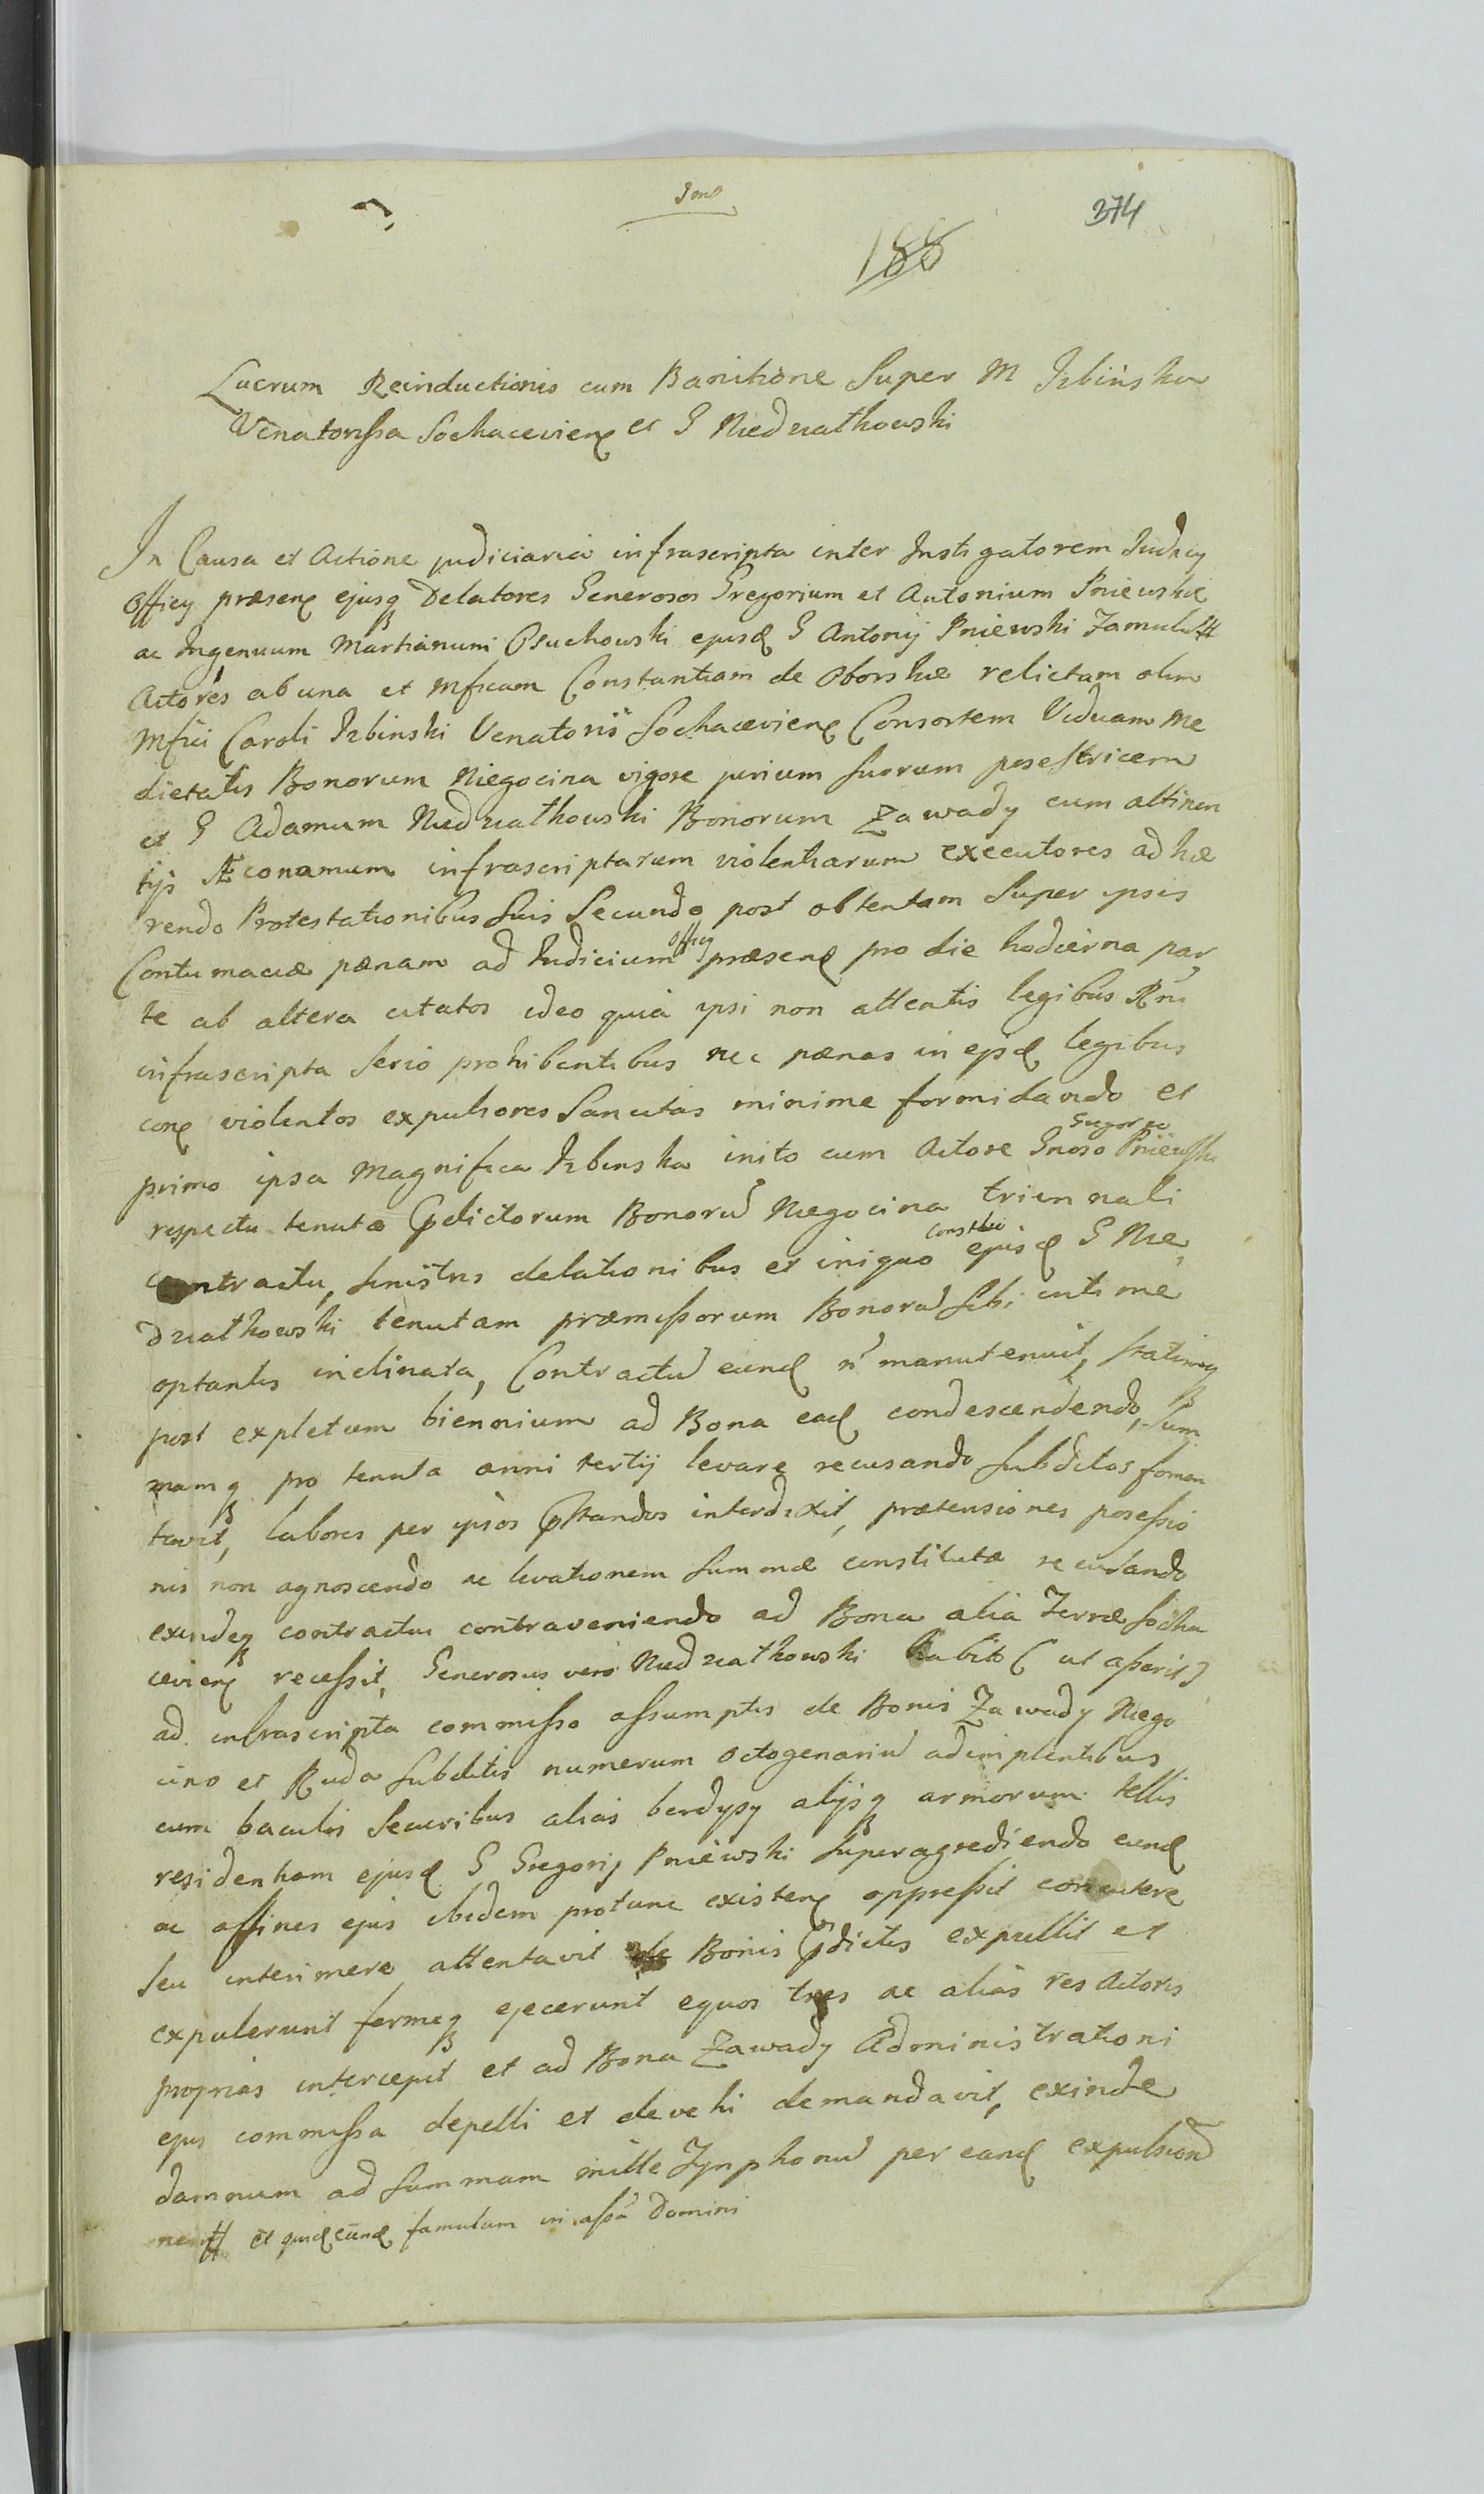 374
188
Lucrum Reinductionis cum Banitione Super M Izbinska
Venatorissa Sochaceviens et G Niedzwiathowski
In Causa et Actione judiciaria infrascripta inter Instigatorem Judicy
Officy præsens ejusq Delatores Generosos Gregorium et Antonium Pniewskie
ac Ingenuum Martianum Psuchowski ejusd G Antonij Pniewski Famulu #
Actores ab una et Mficam Constantiam de Oborskie relictam olim
Mfici Caroli Izbinski Venatoris Sochaceviens Consortem Viduam Me
dietatis Bonorum Niegocina vigore jurium suorum posestricem
et G Adamum Niedzwiathowski Bonorum Zawady cum attinen
tijs Æconamum infrascriptarum violentiarum executores adhæ
rendo Protestationibus suis Secundo post obtentam Super ipsis
Contumaciæ pænam ad Judicium Officy præsens pro die hodierna par
te ab altera citatos ideo quia ipsi non attentis legibus Rni
infrascripta serio prohibentibus nec pænas in ejsd legibus
con violentos expulsores Sancitas minime formidando et
primo ipsa Magnifica Izbinska inito cum Actore Gnoso Gregorio Pniewski
respectu tenutæ pdictorum Bonoru Niegocina triennali
contractu, sinistris delationibus et iniquo Consilio ejusd G Nie
dzwiathowski tenutam præmissorum Bonoru sibi intime
optantis inclinata, Contractu eund n manutenuit, statimq
post expletum biennium ad Bona ead condescendendo, Sum
mamq pro tenuta anni tertij levare recusando subditos fomen
tavit, labores per ipsos pstandos interdixit, prætensiones posessio
nis non agnoscendo ac levationem summæ constitutæ recusando
exindeq contractui contraveniendo ad Bona alia Terræ Socha
ceviens recessit, Generosus vero Niedzwiathowski habito (ut asserit)
ad infrascripta commisso assumptis de Bonis Zawady Niego
cino et Ruda subditis numerum octogenariu adimplentibus
cum baculis securibus alias berdyszy alijsq armorum tellis
residentiam ejusd G Gregorij Pniewski supergrediendo eund
ac affines ejus ibidem protunc existens oppressit concutere
seu interimere attentavit de Bonis pdictis expullit et
expulerunt fermeq ejecerunt equos tres ac alias res Actoris
proprias intercepit et ad Bona Zawady Administrationi
ejus commissa depelli et devehi demandavit, exinde
damnum ad summam mille Tynphonu per eand expulsion
nem # et quid eund famulum in assa Domini